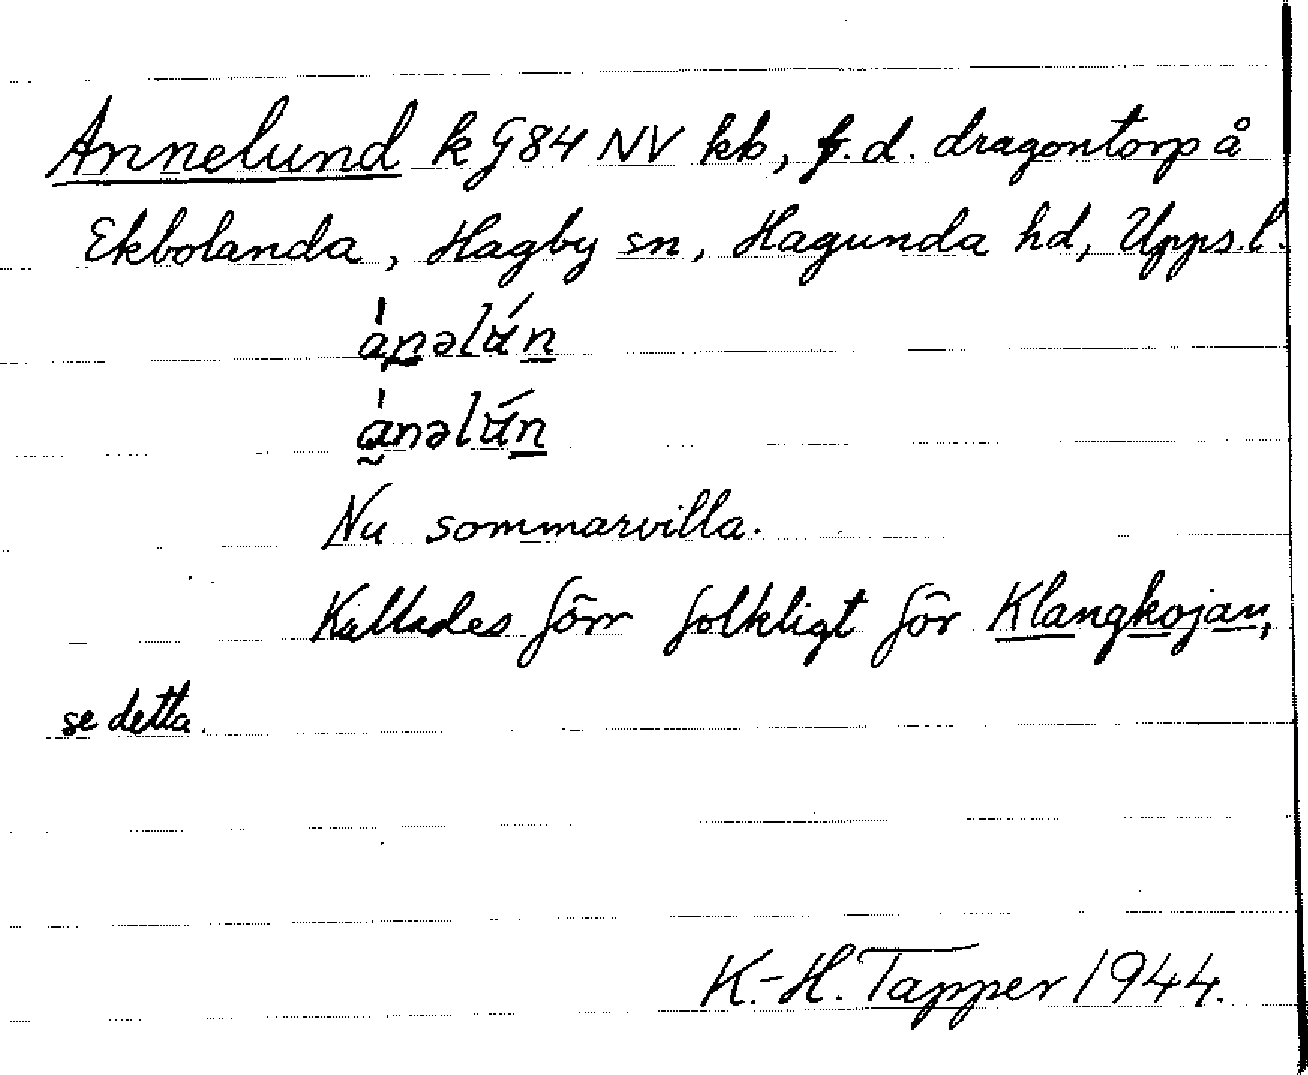 Annelund k G84 NV kb, f.d. dragontorp å
Ekbolanda, Hagby sn, Hagunda hd, Upps.l.
Nu sommarvilla.
Kallades förr folkligt för Klangkojan,
se detta.
K.-H. Tapper 1944.